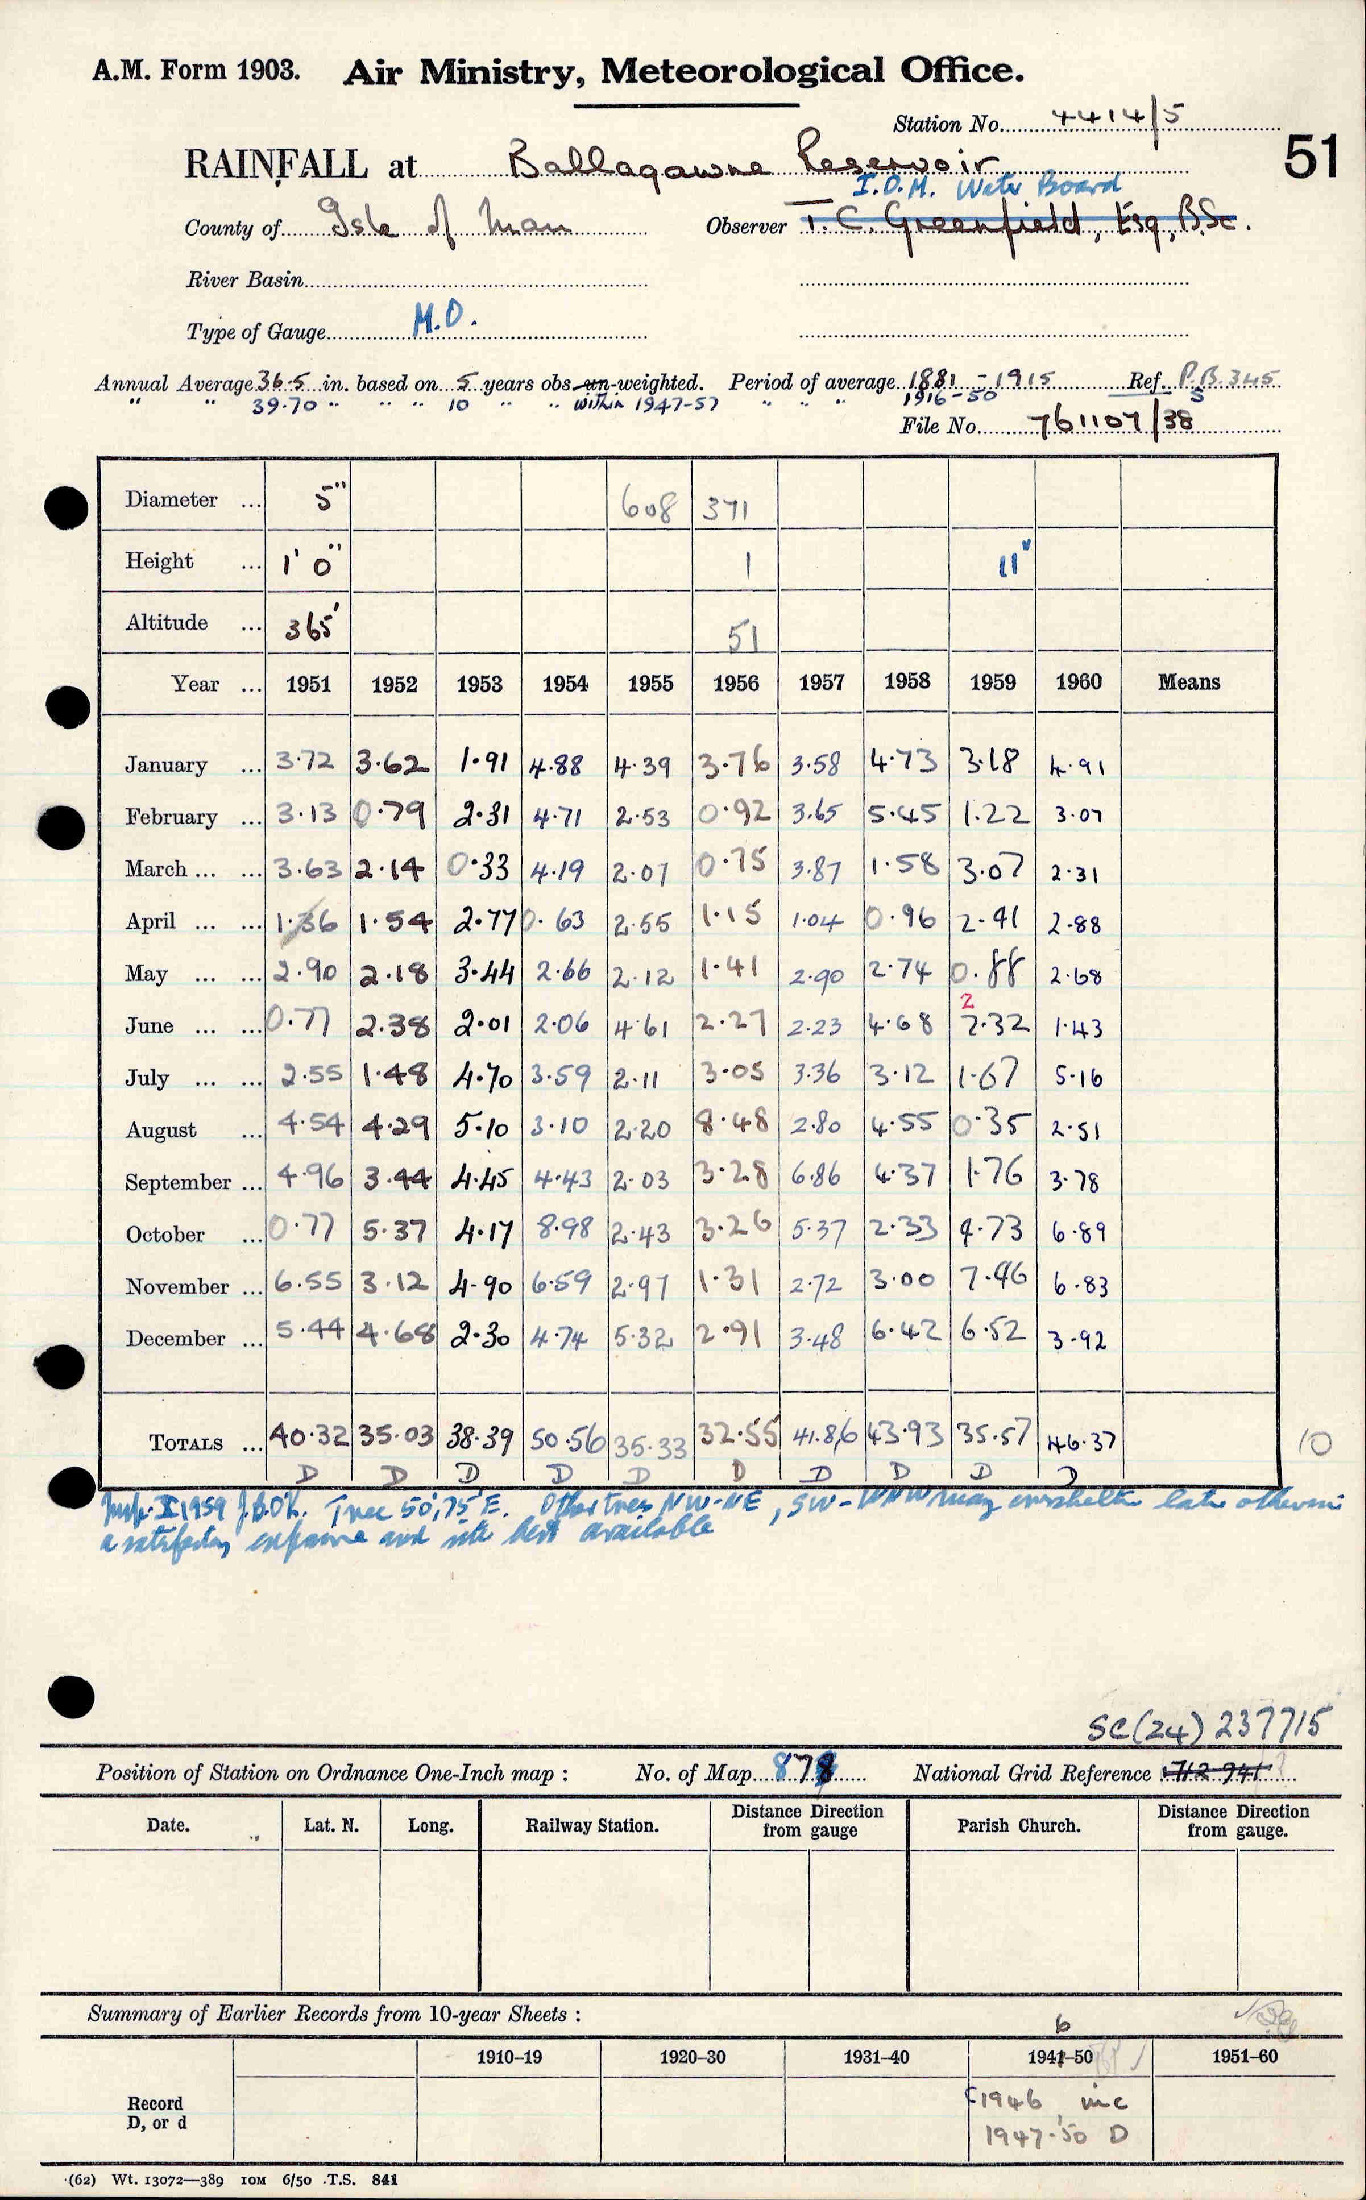 A.M. Form 1903. Air Ministry, Meteorological Office.
Station No. 4414/5
51
RAINFALL at Ballagawne Reservoir
I.O.M. Water Board
County of Isle of Man Observer T. C. Greenfield, Esq., B.Sc.
River Basin
Type of Gauge M.O.
Annual Average 36.5 in. based on 5 years obs. un-weighted. Period of average 1881-1915 Ref. P.B. 345
" " 39.70 " " " 10 " " within 1947-57 " " " 1916-50 S
File No. 761107/38
Diameter ... 5" 608 371
Height ... 1' 0" 1 11"
Altitude ... 365' 51
Year ... 1951 1952 1953 1954 1955 1956 1957 1958 1959 1960 Means
January ... 3.72 3.62 1.91 4.88 4.39 3.76 3.58 4.73 3.18 4.91
February ... 3.13 0.79 2.31 4.71 2.53 0.92 3.65 5.45 1.22 3.07
March ... ... 3.63 2.14 0.33 4.19 2.07 0.75 3.87 1.58 3.07 2.31
April ... ... 1.36 1.54 2.77 0.63 2.55 1.15 1.04 0.96 2.41 2.88
May ... ... 2.90 2.18 3.44 2.66 2.12 1.41 2.90 2.74 0.88 2.68
2
June ... ... 0.77 2.38 2.01 2.06 4.61 2.27 2.23 4.68 2.32 1.43
July ... ... 2.55 1.48 4.70 3.59 2.11 3.05 3.36 3.12 1.67 5.16
August ... 4.54 4.29 5.10 3.10 2.20 8.48 2.80 4.55 0.35 2.51
September ... 4.96 3.44 4.45 4.43 2.03 3.28 6.86 4.37 1.76 3.78
October ... 0.77 5.37 4.17 8.98 2.43 3.26 5.37 2.33 4.73 6.89
November ... 6.55 3.12 4.90 6.59 2.97 1.31 2.72 3.00 7.46 6.83
December ... 5.44 4.68 2.30 4.74 5.32 2.91 3.48 6.42 6.52 3.92
TOTALS ... 40.32 35.03 38.39 50.56 35.33 32.55 41.86 43.93 35.57 46.37 10
D D D D D D D D D D
X 1959 Tree 50', 75' E. Other trees NW-NE, SW-WNW may overshelter later otherwise
a satisfactory exposure and site best available
SC(24) 237715
Position of Station on Ordnance One-Inch map : No. of Map 87 National Grid Reference 712 941
Date. Lat. N. Long. Railway Station. Distance from gauge Direction Parish Church. Distance from gauge. Direction
Summary of Earlier Records from 10-year Sheets :
6
1910-19 1920-30 1931-40 1941-50 1951-60
Record D, or d
1946 inc
1947-50 D
(62) Wt. 13072—389 IOM 6/50 T.S. 841